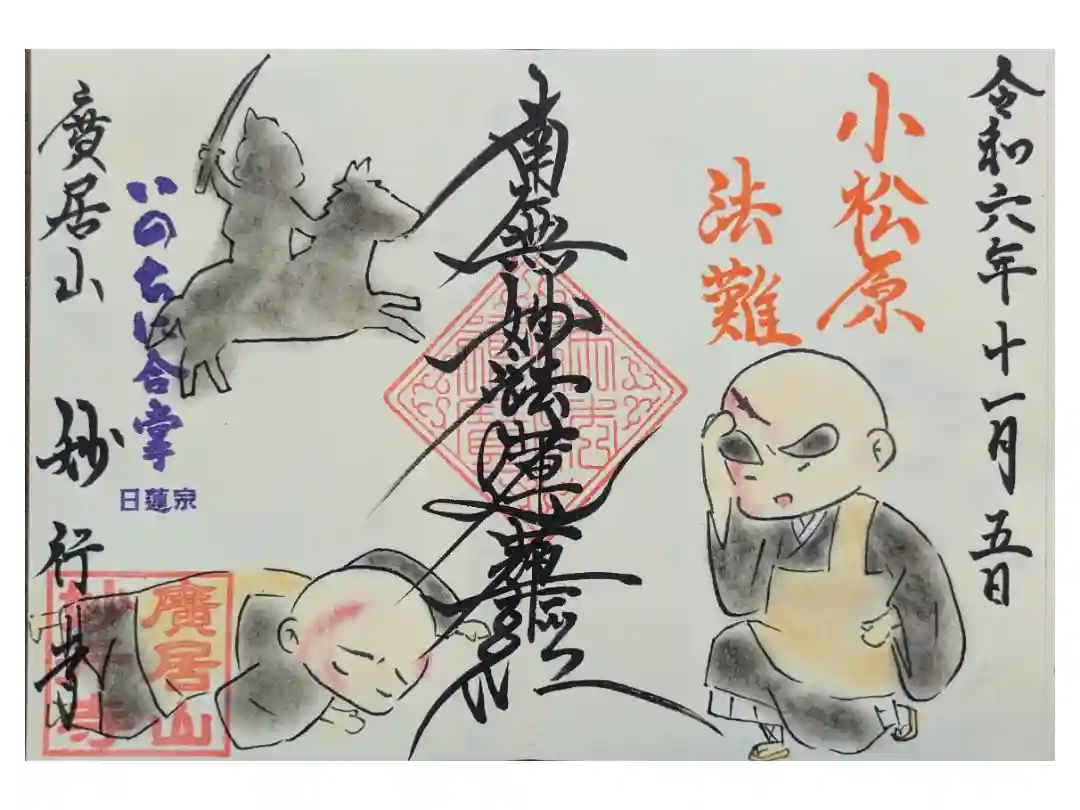 令和六年十一月五日
小松原
法難
南無妙法蓮華経
いのちに合掌
日蓮宗
廣居山 妙行寺
廣居山
妙行寺